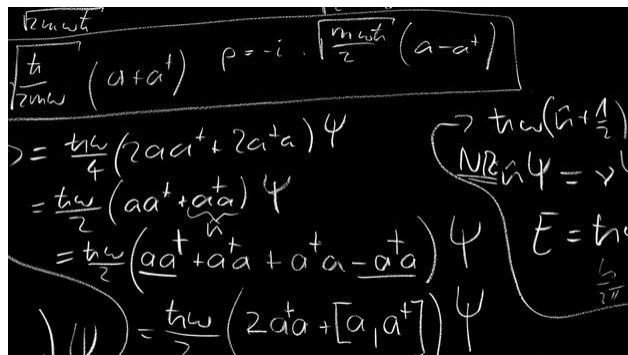 √2mωħ
√ħ/2mω (a+a†) p=-i·√mωħ/2 (a-a†)
= ħω/4 (2aa†+2a†a) Ψ
= ħω/2 (aa†+a†a) Ψ
n̂
= ħω/2 (aa†+a†a+a†a-a†a) Ψ
) Ψ = ħω/2 (2a†a+[a,a†]) Ψ
→ ħω(n̂+1/2)
NR: n̂Ψ = ν
E = ħ
h/2π